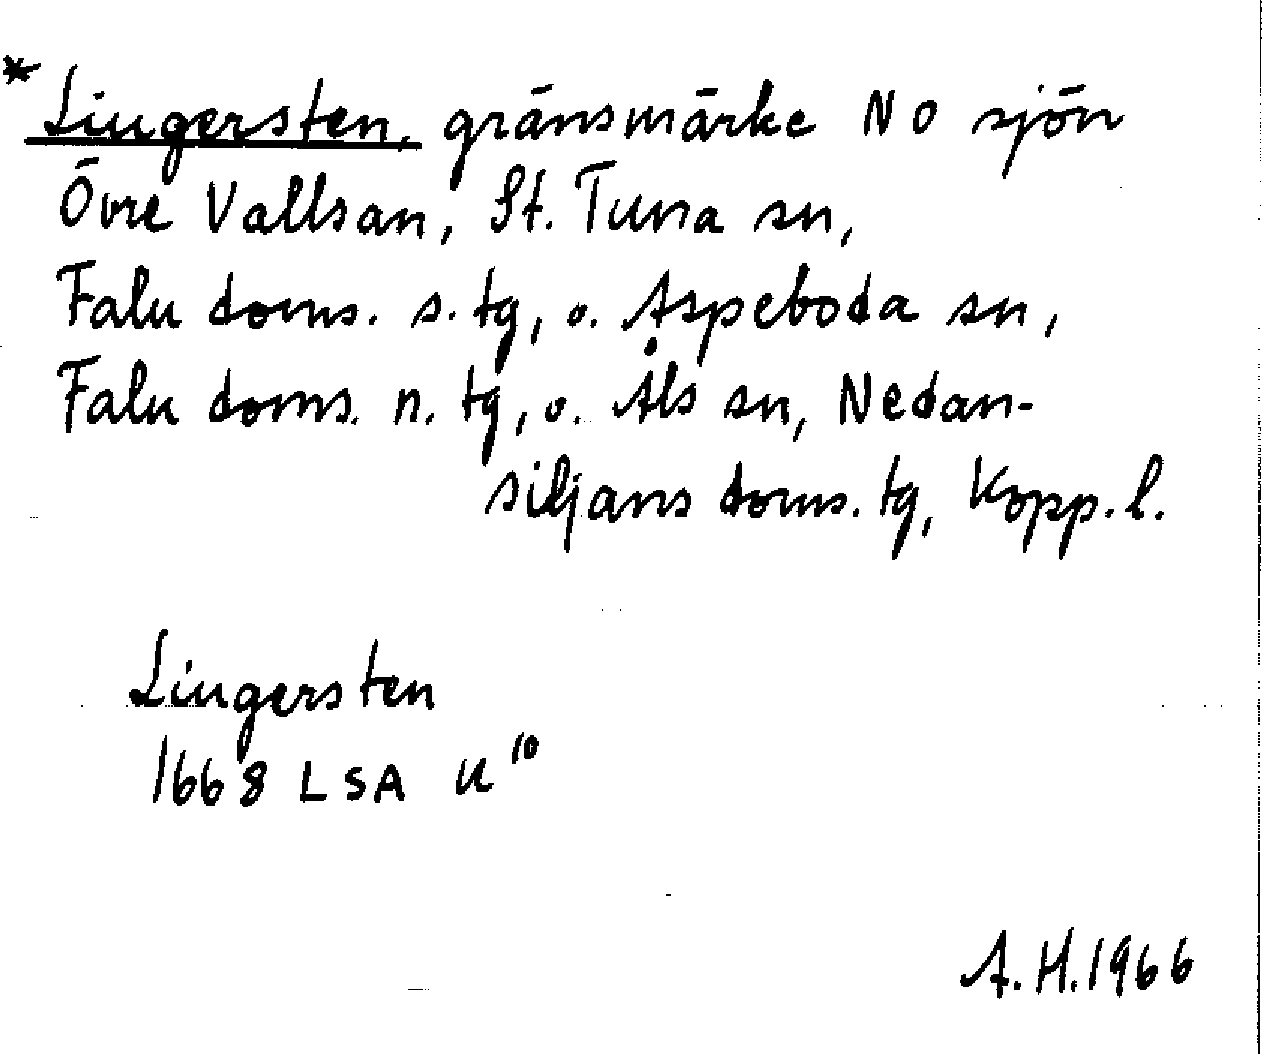 * Lingersten, gränsmärke NO sjön
Övre Vallsan, St. Tuna sn,
Falu doms. s. tg, o. Aspeboda sn,
Falu doms. n. tg, o. Åls sn, Nedan-
siljans doms. tg, Kopp. l.
Lingersten
1668 LSA U¹⁰
A. H. 1966